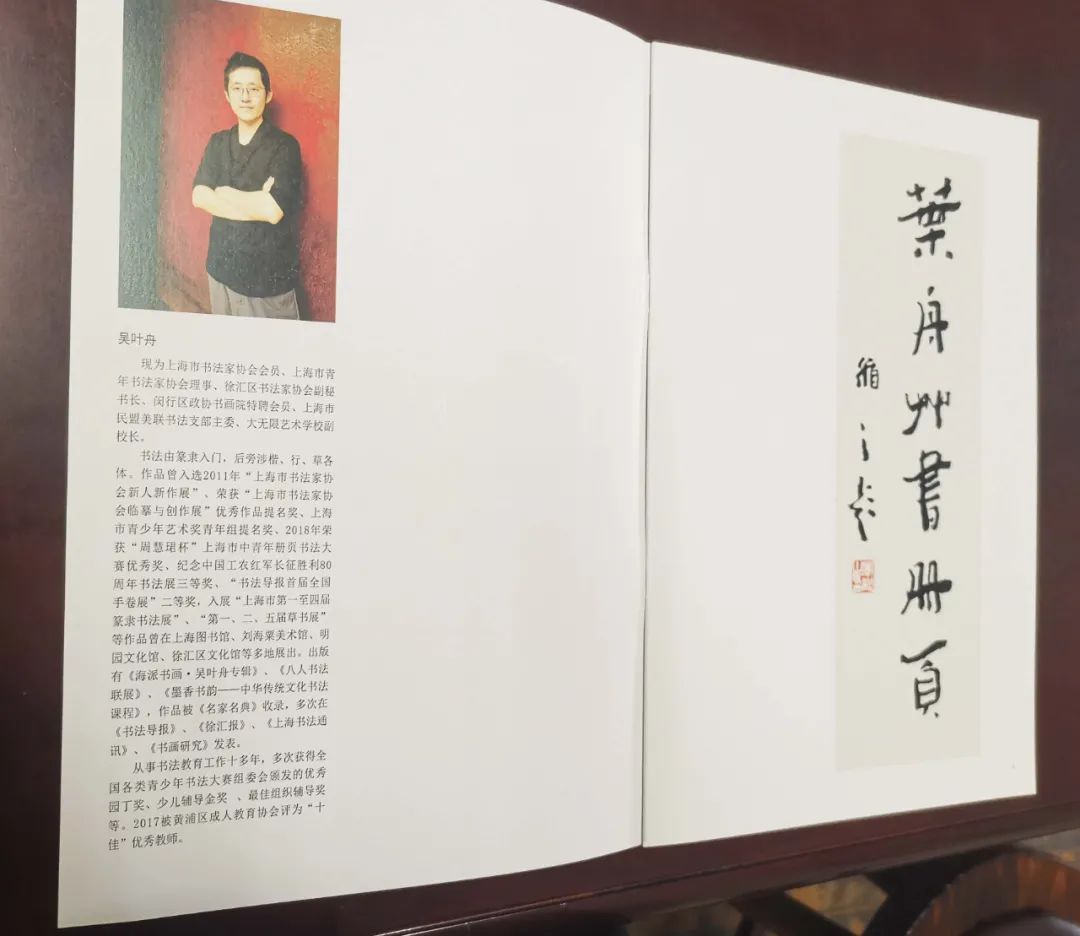 吴叶舟
现为上海市书法家协会会员、上海市青
年书法家协会理事、徐汇区书法家协会副秘
书长、闵行区政协书画院特聘会员、上海市
民盟美联书法支部主委、大无限艺术学校副
校长。
书法由篆隶入门，后旁涉楷、行、草各
体。作品曾入选2011年“上海市书法家协
会新人新作展”、荣获“上海市书法家协
会临摹与创作展”优秀作品提名奖、上海
市青少年艺术奖青年组提名奖、2018年荣
获“周慧珺杯”上海市中青年册页书法大
赛优秀奖、纪念中国工农红军长征胜利80
周年书法展三等奖、“书法导报首届全国
手卷展”二等奖，入展“上海市第一至四届
篆隶书法展”、“第一、二、五届草书展”
等作品曾在上海图书馆、刘海粟美术馆、明
园文化馆、徐汇区文化馆等多地展出。出版
有《海派书画·吴叶舟专辑》、《八人书法
联展》、《墨香书韵——中华传统文化书法
课程》，作品被《名家名典》收录，多次在
《书法导报》、《徐汇报》、《上海书法通
讯》、《书画研究》发表。
从事书法教育工作十多年，多次获得全
国各类青少年书法大赛组委会颁发的优秀
园丁奖、少儿辅导金奖 、最佳组织辅导奖
等。2017被黄浦区成人教育协会评为“十
佳”优秀教师。
葉舟艸書册頁
之題